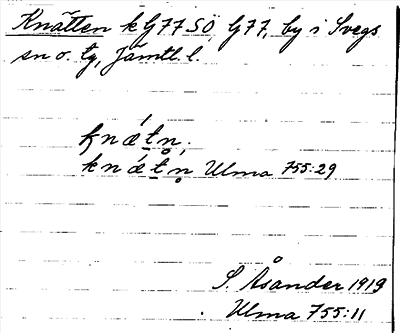 Knätten k G77SÖ, G77, by i Svegs
sn o. tg, Jämtl. l.
knǽt̠n̥,
knǽt̠n̥ Ulma 755:29
S. Åsander 1919
Ulma 755:11